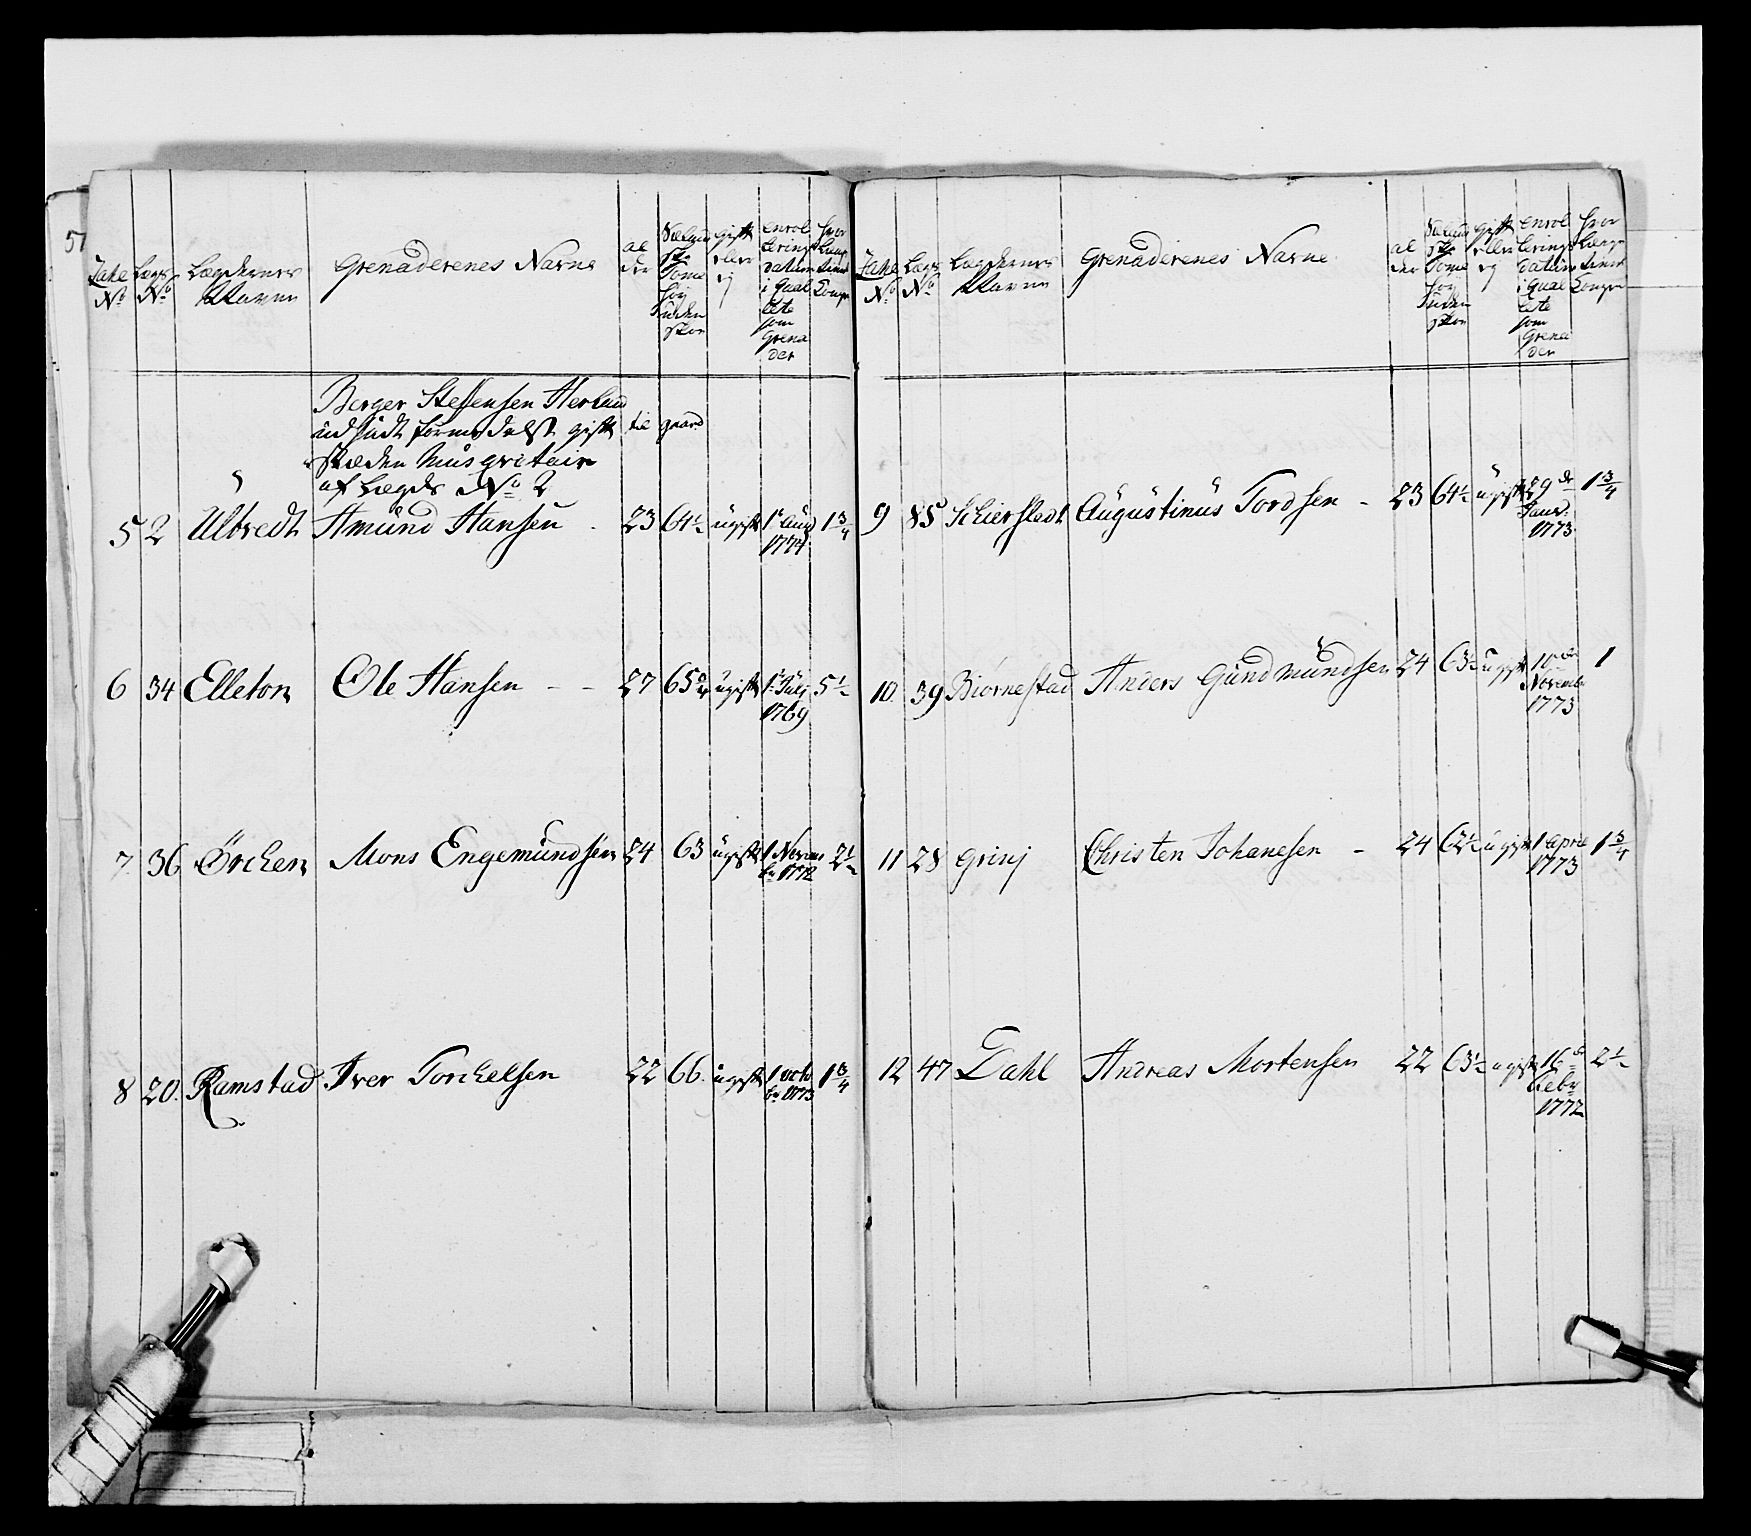 51
Tahl No Lægs No Lægdernes Navne Grenaderenes Navne al der gift eller ey enrol lerings datum i qual itete som Grena der
Berger Steffensen Herland
udsudt formedelst gift til gaard
støden Musqvetair
af Lægds No 2
5 2 Ultvedt Amund Hansen - 23 64½ ugift 1 Aug 1774 1¾
6 34 Elleton Ole Hansen - - 27 65¾ ugift 1 July 1769 5½
7 36 Örchen Mons Engemundsen 24 63 ugift 1 Novem br 1772 2½
8 20. Ramstad Iver Torchelsen 22 66. ugift 1 octo br 1773 1¾
Tahl No Lægs No Lægdernes Navne Grenaderenes Navne al der gift eller ey enrol lerings datum i qual itete som Grena der
9 85 Schierstedt Augustinus Tordsen - 23 64½ ugift 29 de Janv. 1773 1¾
10. 39 Biørnestad Anders Gundmundsen 24 63½ ugift 10 de November 1773 1
11 28 Grinj Christen Johanesen - 24 62½ ugift 1 april 1773 1¾
12 47 Dahl Andreas Mortensen 22 63½ ugift 16 de Febr 1772 2½